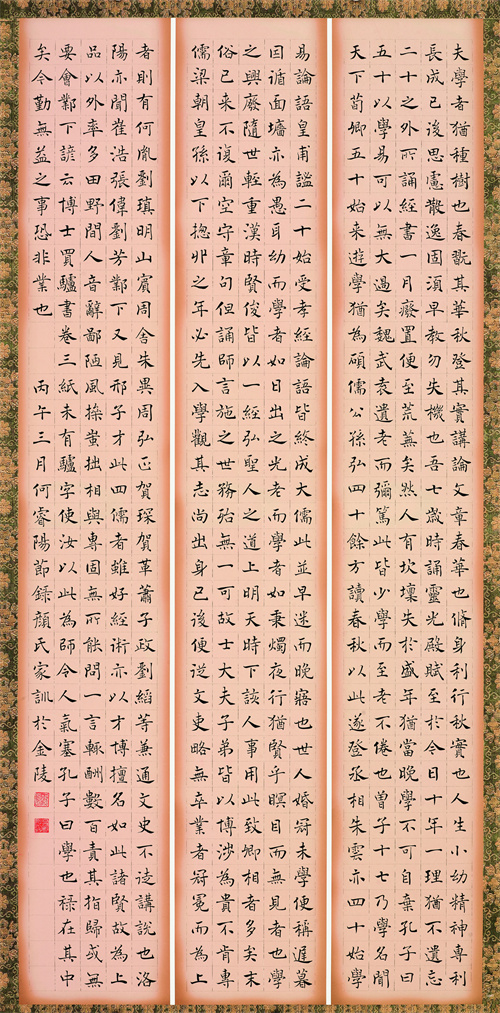 夫學者猶種樹也春翫其華秋登其實講論文章春華也脩身利行秋實也人生小幼精神專利
長成已後思慮散逸固須早教勿失機也吾七歲時誦靈光殿賦至於今日十年一理猶不遺忘
二十之外所誦經書一月廢置便至荒蕪矣然人有坎壈失於盛年猶當晚學不可自棄孔子曰
五十以學易可以無大過矣魏武袁遺老而彌篤此皆少學而至老不倦也曾子十七乃學名聞
天下荀卿五十始來遊學猶為碩儒公孫弘四十餘方讀春秋以此遂登丞相朱雲亦四十始學
易論語皇甫謐二十始受孝經論語皆終成大儒此並早迷而晚寤也世人婚冠未學便稱遲暮
因循面墻亦為愚耳幼而學者如日出之光老而學者如秉燭夜行猶賢乎瞑目而無見者也學
之興廢隨世輕重漢時賢俊皆以一經弘聖人之道上明天時下該人事用此致卿相者多矣末
俗已來不復爾空守章句但誦師言施之世務殆無一可故士大夫子弟皆以博涉為貴不肯專
儒梁朝皇孫以下揔丱之年必先入學觀其志尚出身已後便從文吏略無卒業者冠冕而為上
者則有何胤劉瓛明山賓周舍朱異周弘正賀琛賀革蕭子政劉縚等兼通文史不徒講說也洛
陽亦聞崔浩張偉劉芳鄴下又見邢子才此四儒者雖好經術亦以才博擅名如此諸賢故為上
品以外率多田野間人音辭鄙陋風操蚩拙相與專固無所能問一言輒酬數百責其指歸或無
要會鄴下諺云博士買驢書卷三紙未有驢字使汝以此為師令人氣塞孔子曰學也祿在其中
矣今勤無益之事恐非業也 丙午三月何睿陽節錄顏氏家訓於金陵